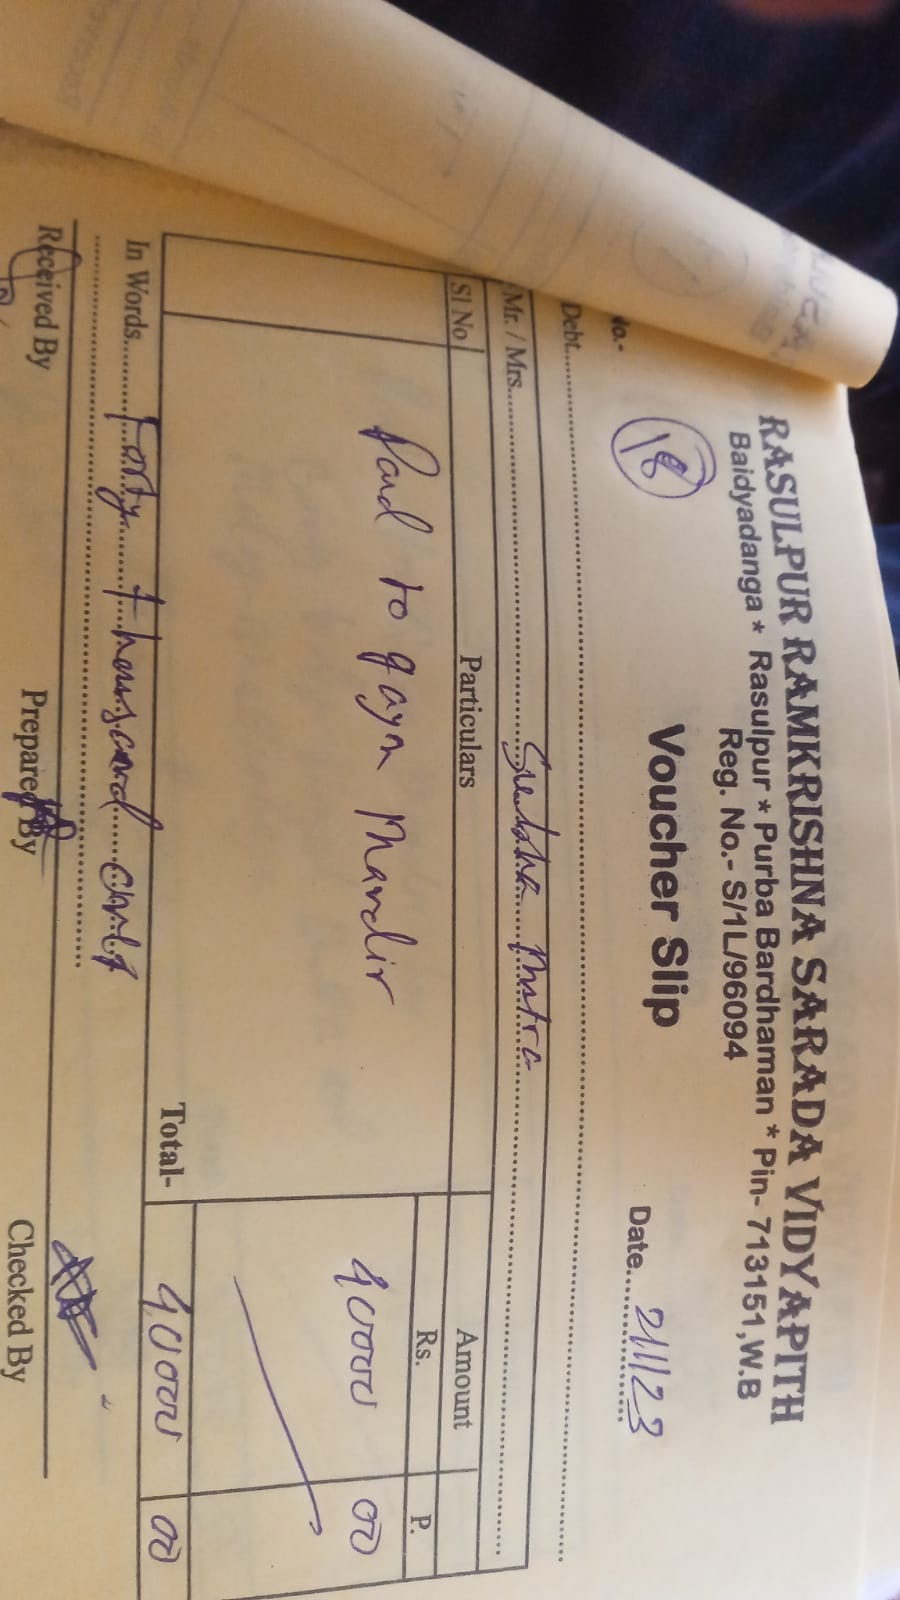 RASULPUR RAMKRISHNA SARADA VIDYAPITH
Baidyadanga * Rasulpur * Purba Bardhaman * Pin- 713151,W.B
Reg. No.- S/1L/96094
No.- 18 Voucher Slip Date 2/1/23
Debt
Mr. / Mrs.
Sl No Particulars Amount
Rs. P.
Paid to gayn Mandir 40000 00
Total- 40000 00
In Words Forty thousand only
Received By Prepared By Checked By